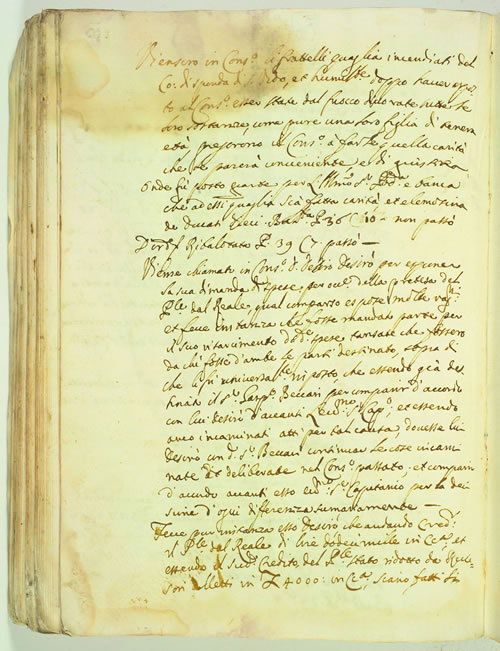 Vensero in Cons.o li fratelli Quaglia incendiati del
Co: di sponda di et humil.te doppo haver espo-
to al Cons.o esser state dal fuoco divorate tutte le
loro sostanze, come pure una loro figlia di tenera
età pregorono il Cons.o à farle quella carità
che le parerà conveniente, e di giustitia
Onde fù posto parte per l'Ill.mo S.r e banca
che ad essi Quaglia sia fatta carità et elemosina
de Ducati dieci P. 36 C. 10 - non passò
Ribalotato P. 39 C. 7 passò —
Venne chiamato in Cons.o D. Desirò per esponer
la sua dimanda di spese, per occ.e della pretesa del
dal Reale, qual comparso espose molte rag.ni
et fece instanza che fosse mandato parte per
il suo risarcimento di d.e spese tansate che fossero
da chi fosse d'ambe le parti destinato, sopra di
che li fù risposto, che essendo già des-
tinato il S.r Beccari per comparir d'accordo
con lui Desirò avanti S.r Cap.o, et essendo
anco incaminati atti per tal causa, dovesse lui
Desirò con d.o S.r Beccari continuar le cose incami-
nate et deliberate nel Cons.o passato, et comparir
d'accordo avanti esso S.r Capitanio per la deci-
sione d'ogni differenza sumariamente —
Fece pur instanza esso Desirò che andando Cred.r
il dal Reale di lire dodeci mille in et
essendo il Credito del stato ridotto da
sori elletti in £ 4000: in siano fatti li